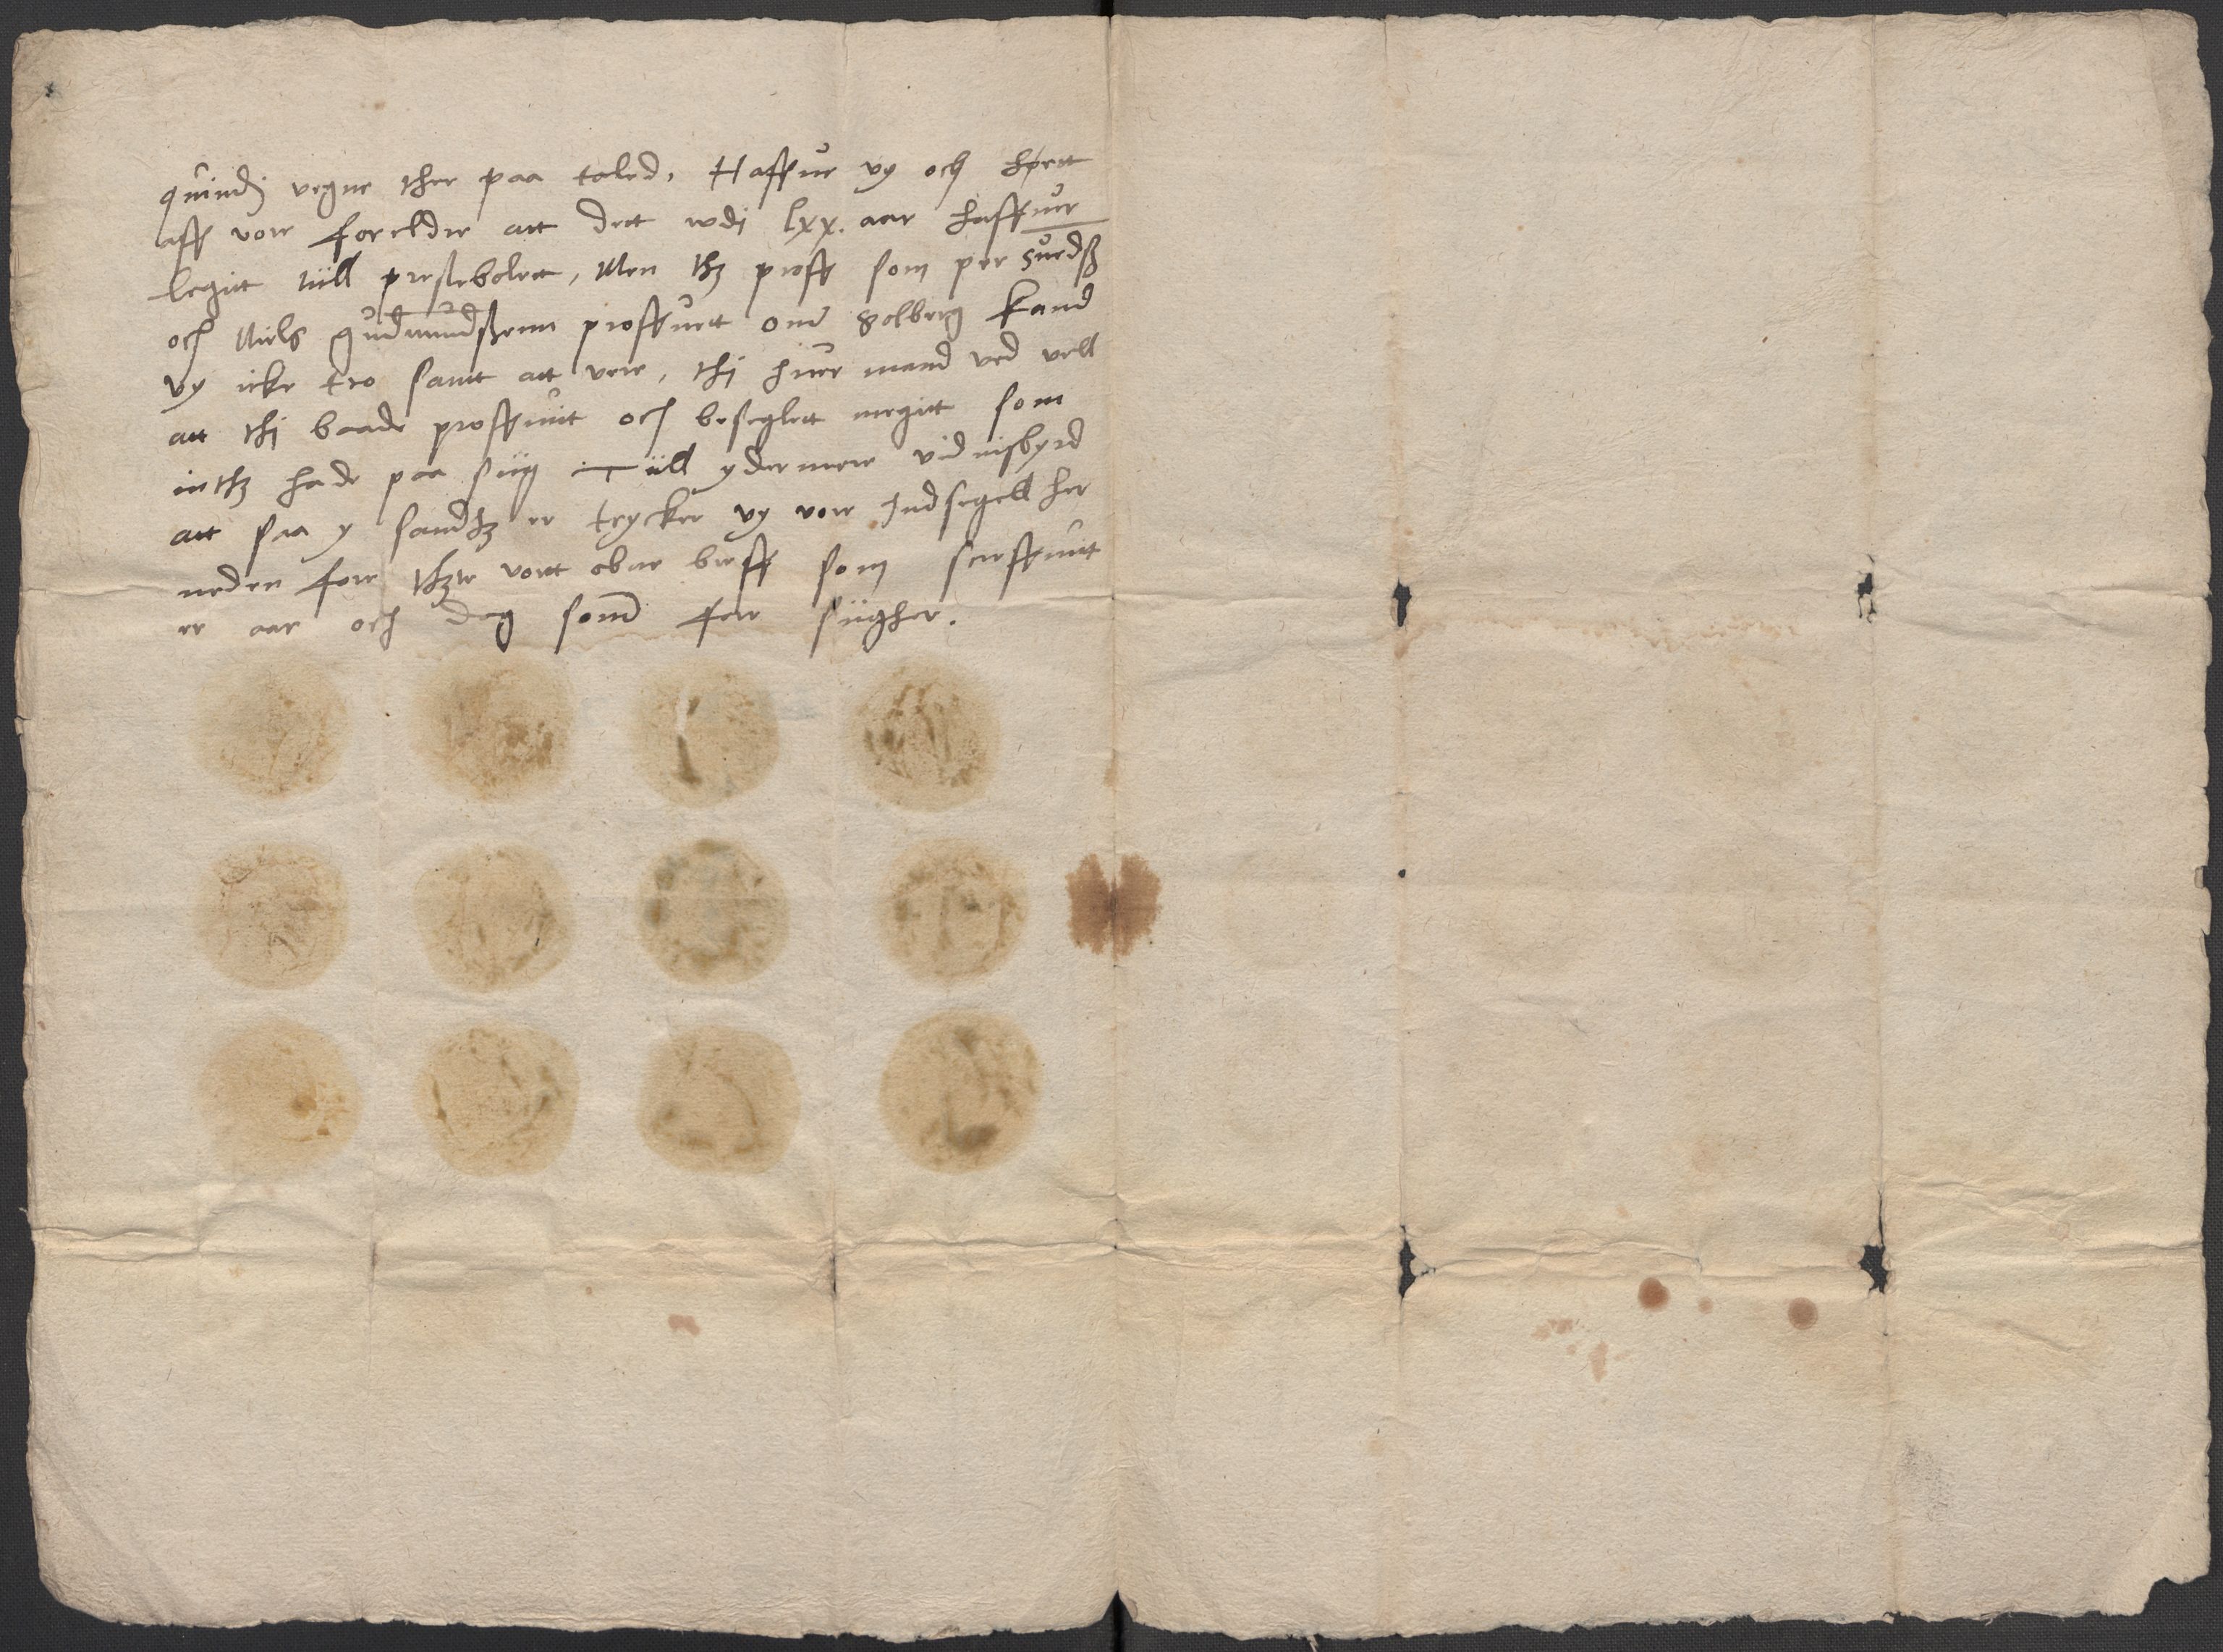 quindj vegne ther paa taled, Haffue vy och hørtt
aff vore foreldre att dett wdj lxx. aar haffuer
legitt tiill prestebolett, Men thz proff som per suedß
och Niels gudmundßenn proffuett om solberg kand
vy icke tro samtt att vere, thj huer mand ved vell
att thj baade proffuitt och beseglett megitt som
inthz hade paa siig Tiill ydermere vidnisbyrd
att saa y sandhz er trycker vy vore Indsegell her
neden fore thzte vortt obne breff som screffuitt
er aar och dag som fore siigher.